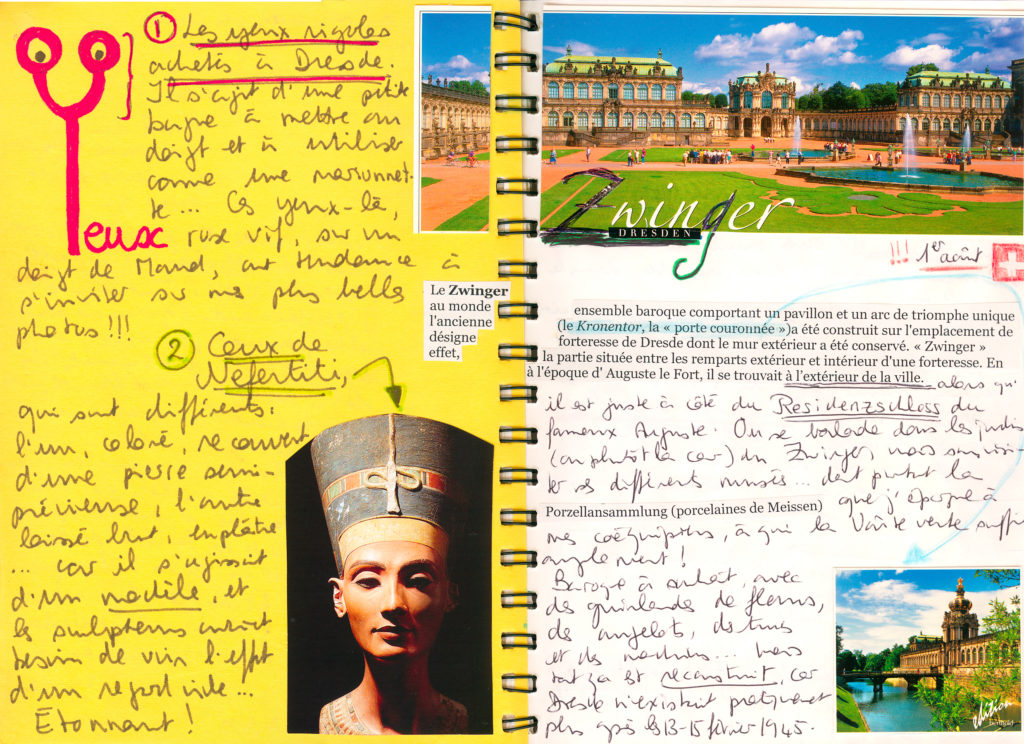 ① Les yeux rigolos
achetés à Dresde.
Il s'agit d'une petite
bague à mettre au
doigt et à utiliser
comme une marionnet-
te... Ces yeux-là,
Yeux
rose vif, sur un
doigt de Maud, ont tendance à
s'inviter sur nos plus belles
photos !!!
② Ceux de
Nefertiti,
qui sont différents.
l'un, coloré, recouvert
d'une pierre semi-
précieuse, l'autre
laissé brut, en plâtre
... car il s'agissait
d'un modèle, et
les sculpteurs avaient
besoin de voir l'effet
d'un regard vide...
Étonnant !
Zwinger
DRESDEN
!!! 1er août
Le Zwinger
au monde
l'ancienne
désigne
effet,
ensemble baroque comportant un pavillon et un arc de triomphe unique
(le Kronentor, la « porte couronnée »)a été construit sur l'emplacement de
forteresse de Dresde dont le mur extérieur a été conservé. « Zwinger »
la partie située entre les remparts extérieur et intérieur d'une forteresse. En
à l'époque d' Auguste le Fort, il se trouvait à l'extérieur de la ville. alors qu'
il est juste à côté du Residenzschloss du
fameux Auguste. On se balade dans les jardins
(ou plutôt la cour) du Zwinger, sans visi-
ter ses différents musées... dont surtout la
Porzellansammlung (porcelaines de Meissen) que j'épargne à
mes coéquipiers, à qui la Voûte verte suffit
amplement !
Baroque à souhait, avec
des guirlandes de fleurs,
des angelots, des
et des ... mais
tout ça est reconstruit, car
Dresde n'existait pratiquement
plus après les 13-15 février 1945.
edition